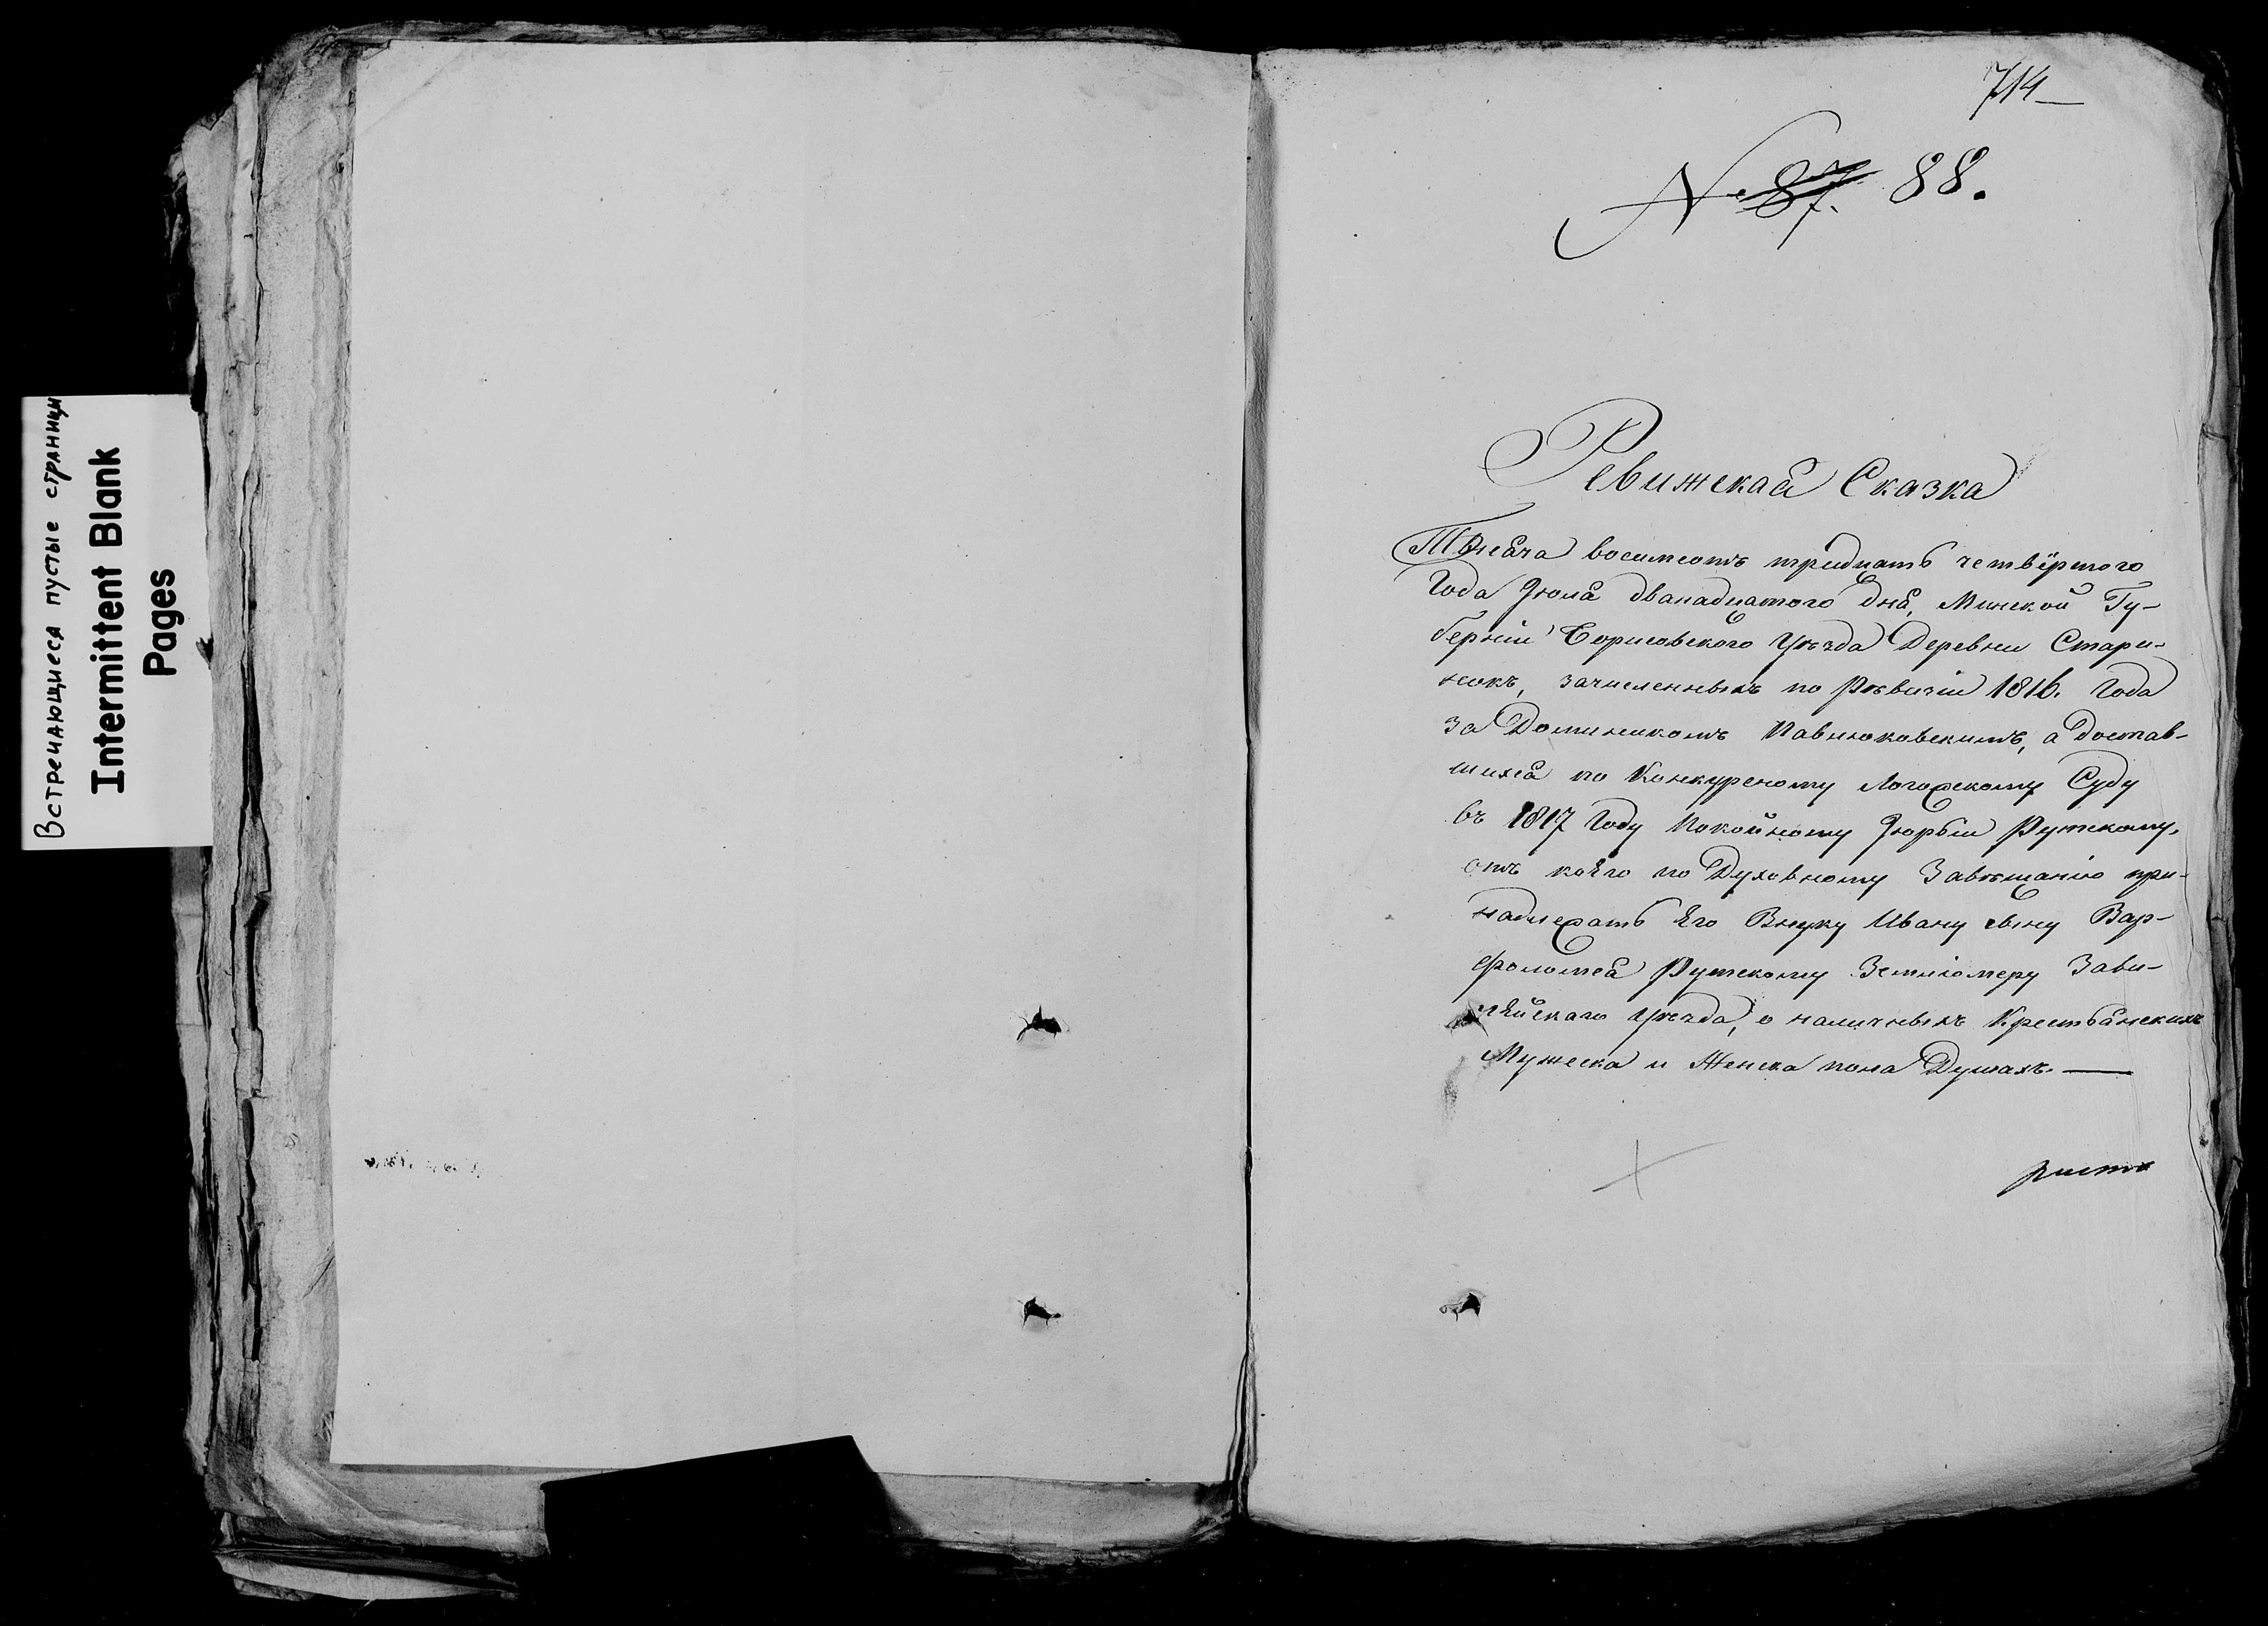 Встречающиеся пустые страницы
Intermittent Blank
Pages
714
№ 87. 88.
Ревижская Сказка
Тысяча восимсотъ тридцать четвёртого
Года Іюля дванадцатого дня, Минской Гу-
берніи Борисовского Уѣзда Деревни Стари-
нокъ, зачисленныхъ по Рѣвизіи 1816. Года
за Доминикомъ Павлюковскимъ, а достав-
шихся по Конкурсному Логожскому Суду
въ 1817 Году Покойному Юрыи Рутскому,
отъ коего по Духовному Завѣщанію при-
надлежатъ Его Внуку Ивану сыну Вар-
фоломея Рутскому Землѣмеру Зави-
лейскаго Уѣзда, о наличныхъ Крестьянскихъ
Мужеска и Женска пола Душахъ.